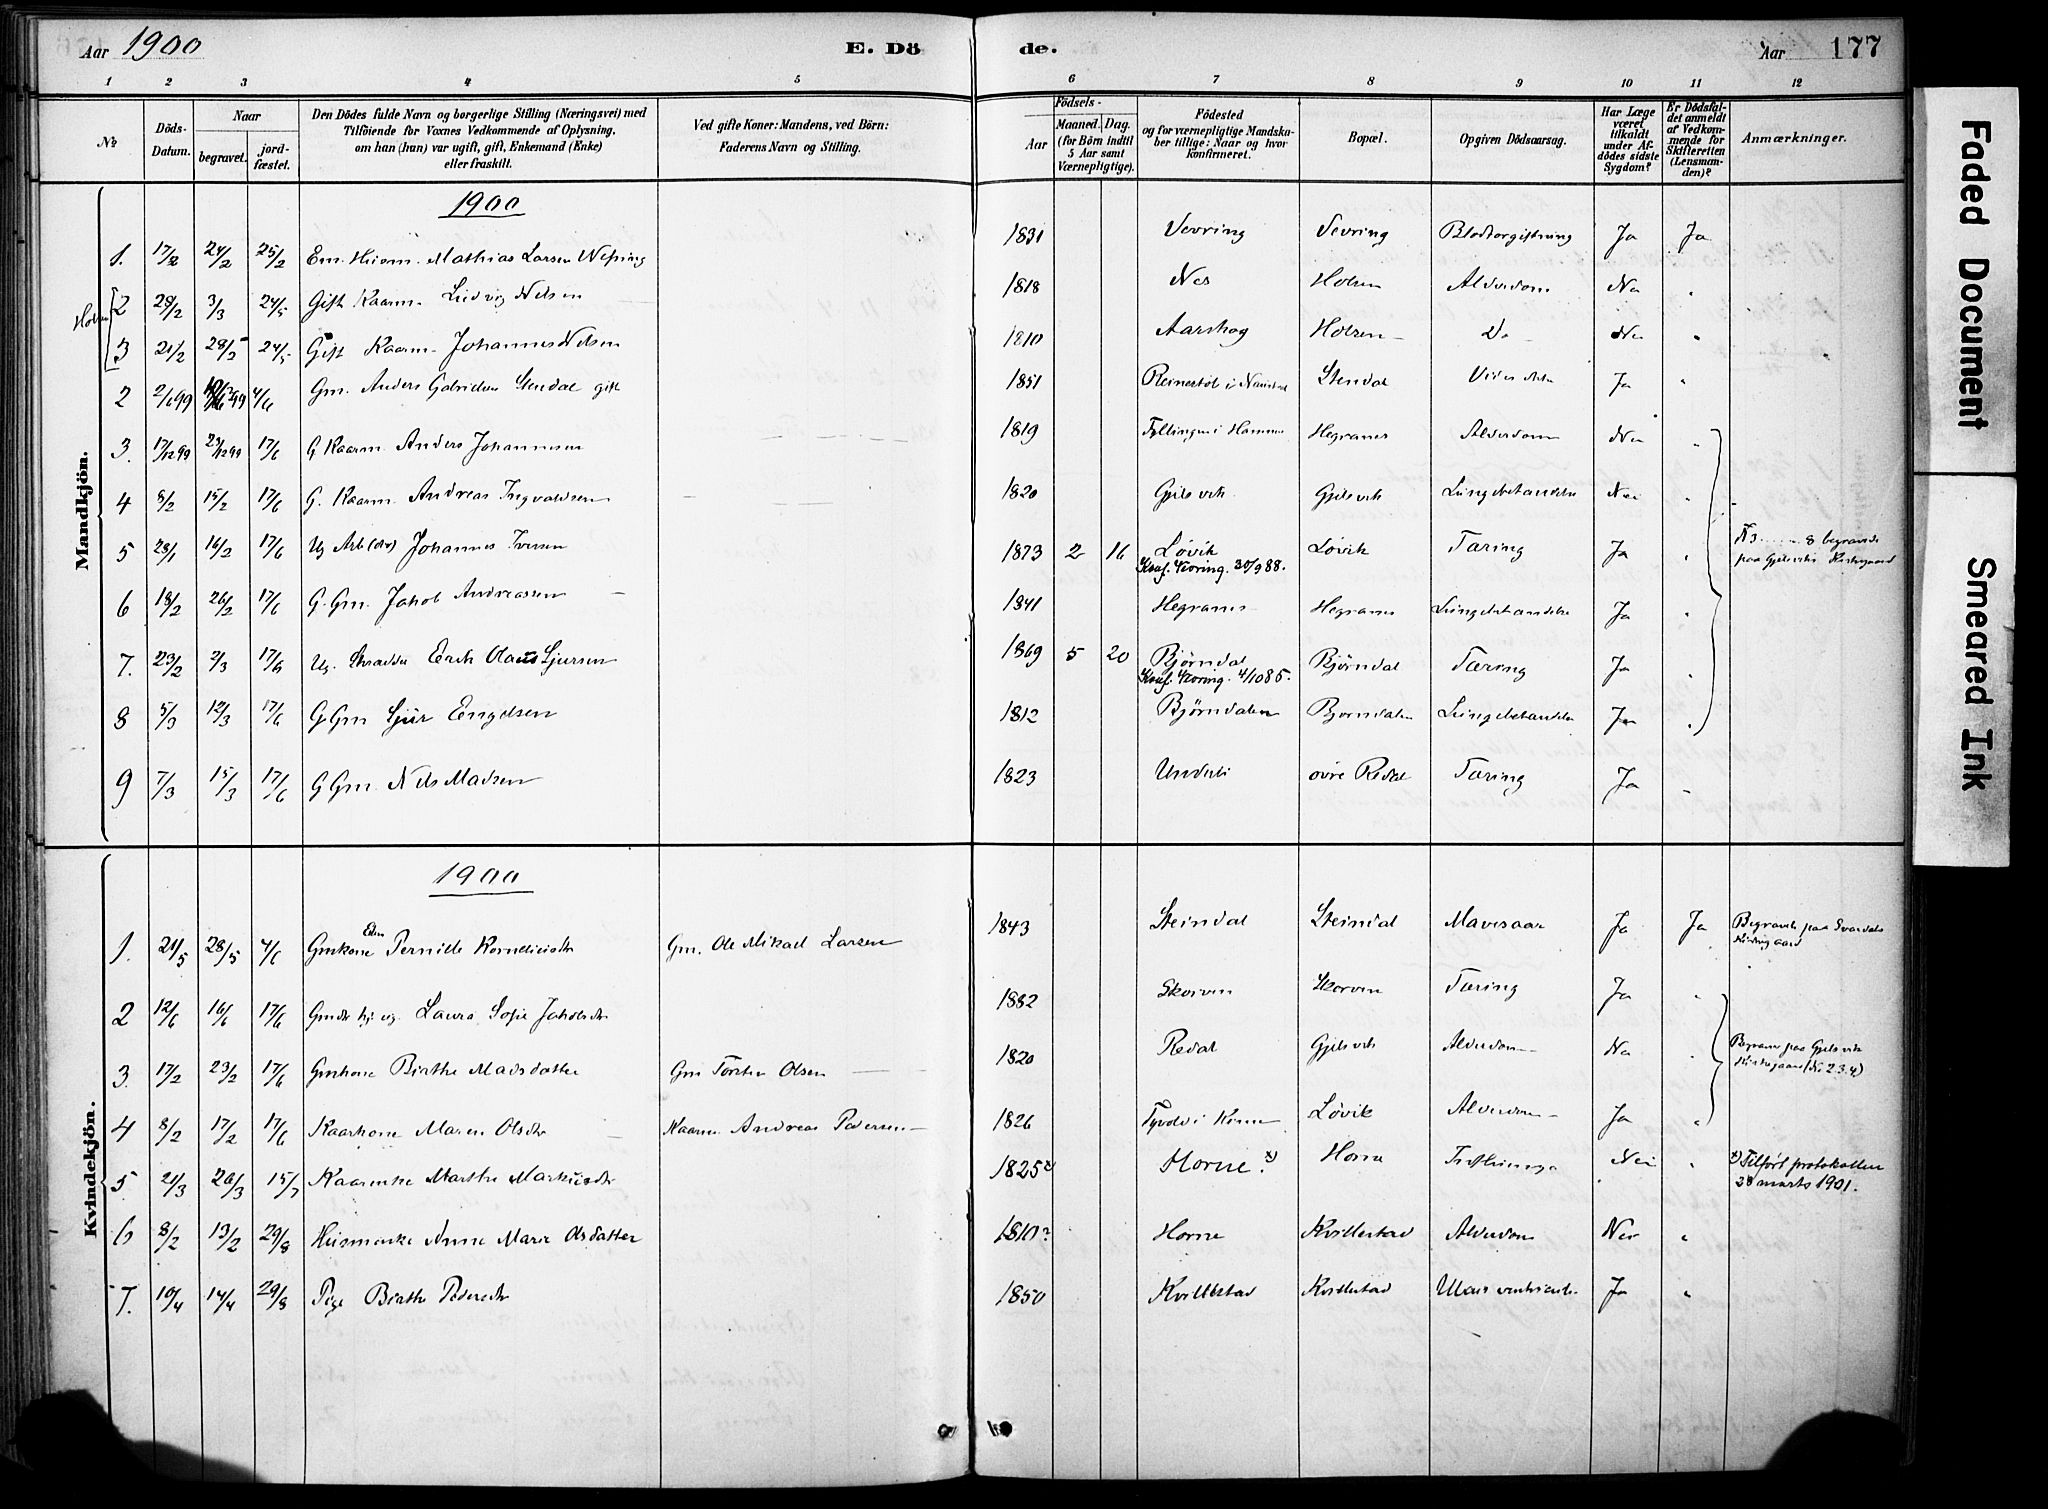 Aar 1900
E. Dö
de.
Aar 177
1 2 3 4 5 6 7 8 9 10 11 12
№
Döds-
Datum.
Naar
begravet.
jord-
fæstet.
Den Dödes fulde Navn og borgerlige Stilling (Næringsvei) med
Tilföiende for Voxnes Vedkommende af Oplysning,
om han (hun) var ugift, gift, Enkemand (Enke)
eller fraskilt.
Ved gifte Koner: Mandens, ved Börn:
Faderens Navn og Stilling.
Födsels-
Aar
Maaned. Dag.
(for Börn indtil
5 Aar samt
Værnepligtige).
Födested
og for værnepligtige Mandska-
ber tillige: Naar og hvor
konfirmeret.
Bopæl.
Opgiven Dödsaarsag.
Har Læge
været
tilkaldt
under Af-
dödes sidste
Sygdom?
Er Dödsfal-
det anmeldt
af Vedkom-
mende for
Skifteretten
(Lensman-
den)?
Anmærkninger.
Mandkjön.
1900
1. 17/2 24/2 25/2 Em. Husm. Mathias Larsen 1831 Vevring Vevring Blodforgiftning Ja Ja
Holsen
2 28/2 3/3 24/5 Gift Kaarm. Ludvig Nilsen 1818 Nes Holsen Alderdom Nei "
3 21/2 28/2 24/5 Gift Kaarm. Johannes Nilsen 1810 Aarskog Holsen Do Nei "
2 2/6 99 4/6 Gm. Anders Gabrielsen Stendal gift 1851 i Naustdal Stendal Ja "
3. 17/12 99 23/12 99 17/6 G. Kaarm. Anders Johannesen 1819 Hegranes Alderdom Nei "
4 8/2 15/2 17/6 G. Kaarm. Andreas Ingvaldsen 1820 Gjelsvik Gjelsvik Lungebetændelse Nei "
5 28/1 16/2 17/6 Ug. Arb. Johannes Iversen 1873 2 16 Løvik Løvik Tæring Ja "
Konf. Vevring. 30/9 88.
№ 3 ... 8 begravede
paa Gjelsviks Kirkegaard
6 18/2 26/2 17/6 G. Gm. Jakob Andreassen 1841 Hegranes Hegranes Lungebetændelse Ja "
7. 23/2 2/3 17/6 Ug. Skrædder Erik Olaus Sjursen 1869 5 20 Bjørndal Bjørndal Tæring Ja "
Konf. Vevring. 4/10 85.
8 5/3 12/3 17/6 G. Gm. Sjur Engelsen 1812 Bjørndalen Bjørndalen Lungebetændelse Ja "
9 7/3 15/3 17/6 G. Gm. Nils Madsen 1823 Underli øvre Redal Tæring Ja "
Kvindekjön.
1900
1. 21/5 28/5 4/6 Gmkone Elen Pernille Korneliusdtr Gm. Ole Mikael Larsen 1843 Steindal Steindal Mavesaar Ja Ja Begravet paa Svardals
Kirkegaard
2 12/6 16/6 17/6 Laura Sofie Jakobsdtr 1882 Skorven Skorven Tæring Ja "
3. 17/2 23/2 17/6 Gmkone Birthe Madsdatter Gm. Torsten Olsen 1820 Redal Gjelsvik Alderdom Nei "
Begravne paa Gjelsvik
Kirkegaard (№ 2.3.4)
4 8/2 17/2 17/6 Kaarkone Maren Olsdtr Kaarm. Andreas Pedersen 1826 Løvik Alderdom Ja "
5 21/3 26/3 15/7 Kaarenke Marthe Markusdtr 1825 x) Horne. x) Horne Nei "
x) Tilført protokollen
28 marts 1901.
6 8/2 13/2 29/8 Husmenke Anne Marie Olsdatter 1810? Horne Kvillestad Alderdom Nei "
7. 10/4 14/4 29/8 Pige Birthe Pedersdtr 1850 Kvillestad Kvillestad Ja "
Faded Document
Smeared Ink